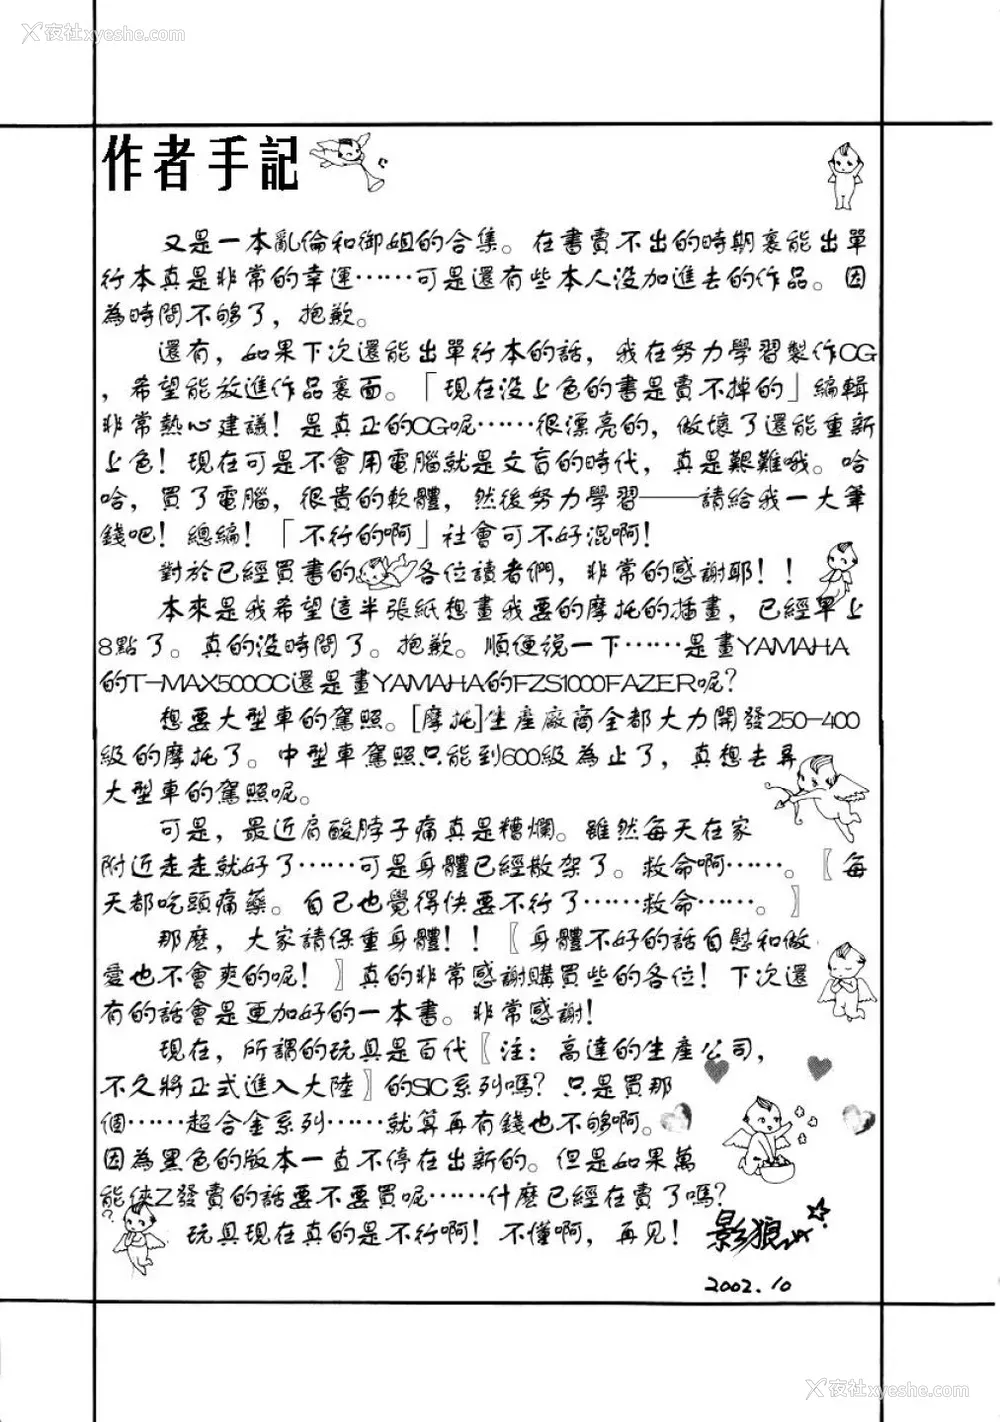 夜社xyeshe.com
夜社xyeshe.com
作者手記
又是一本亂倫和御姐的合集。在書賣不出的時期裏能出單
行本真是非常的幸運……可是還有些本人沒加進去的作品。因
為時間不够了，抱歉。
還有，如果下次還能出單行本的話，我在努力學習製作CG
，希望能放進作品裏面。「現在沒上色的書是賣不掉的」編輯
非常熱心建議！是真正的CG呢……很漂亮的，做壞了還能重新
上色！現在可是不會用電腦就是文盲的時代，真是艱難哦。哈
哈，買了電腦，很貴的軟體，然後努力學習——請給我一大筆
錢吧！總編！「不行的啊」社會可不好混啊！
對於已經買書的各位讀者們，非常的感謝耶！！
本來是我希望這半張紙想畫我要的摩托的插畫，已經早上
8點了。真的沒時間了。抱歉。順便说一下……是畫YAMAHA
的T-MAX500CC還是畫YAMAHA的FZS1000FAZER呢？
想要大型車的駕照。[摩托]生產廠商全都大力開發250-400
級的摩托了。中型車駕照只能到600級為止了，真想去弄
大型車的駕照呢。
可是，最近肩酸脖子痛真是糟爛。雖然每天在家
附近走走就好了……可是身體已經散架了。救命啊……。〖每
天都吃頭痛藥。自己也覺得快要不行了……救命……。〗
那麼，大家請保重身體！！〖身體不好的話自慰和做
愛也不會爽的呢！〗真的非常感謝購買些的各位！下次還
有的話會是更加好的一本書。非常感謝！
現在，所謂的玩具是百代〖注：高達的生產公司，
不久將正式進入大陸〗的SIC系列嗎？只是買那
個……超合金系列……就算再有錢也不够啊。
因為黑色的版本一直不停在出新的。但是如果萬
能俠Z發賣的話要不要買呢……什麼已經在賣了嗎？
玩具現在真的是不行啊！不懂啊，再见！影狼
2002.10
夜社xyeshe.com